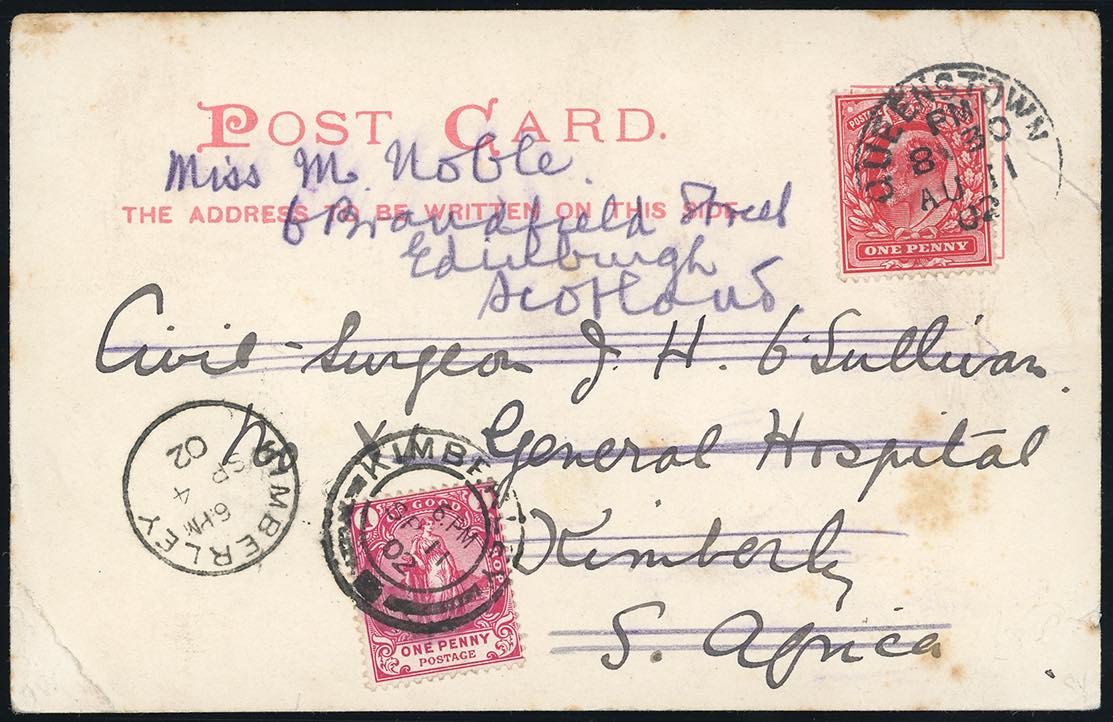 POST CARD.
Miss M. Noble.
THE ADDRESS TO BE WRITTEN ON THIS SIDE.
6 Brandfield Street
Edinburgh
Scotland
QUEENSTOWN
PM
8 30
AU 11
02
POSTAGE
ONE PENNY
Civil-Surgeon J. H. O'Sullivan.
General Hospital
Kimberly
S. Africa
KIMBERLEY
6 PM
SP 4
02
KIMBERLEY
6 PM
SP 11
02
OF GOOD HOPE
ONE PENNY
POSTAGE